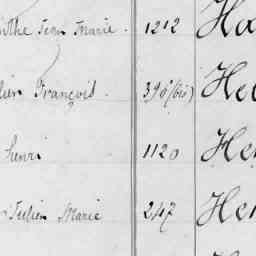 Jean Marie. 1212 Ha
François. 390 (bis) He
henri 1120 He
Julien Marie 247 He